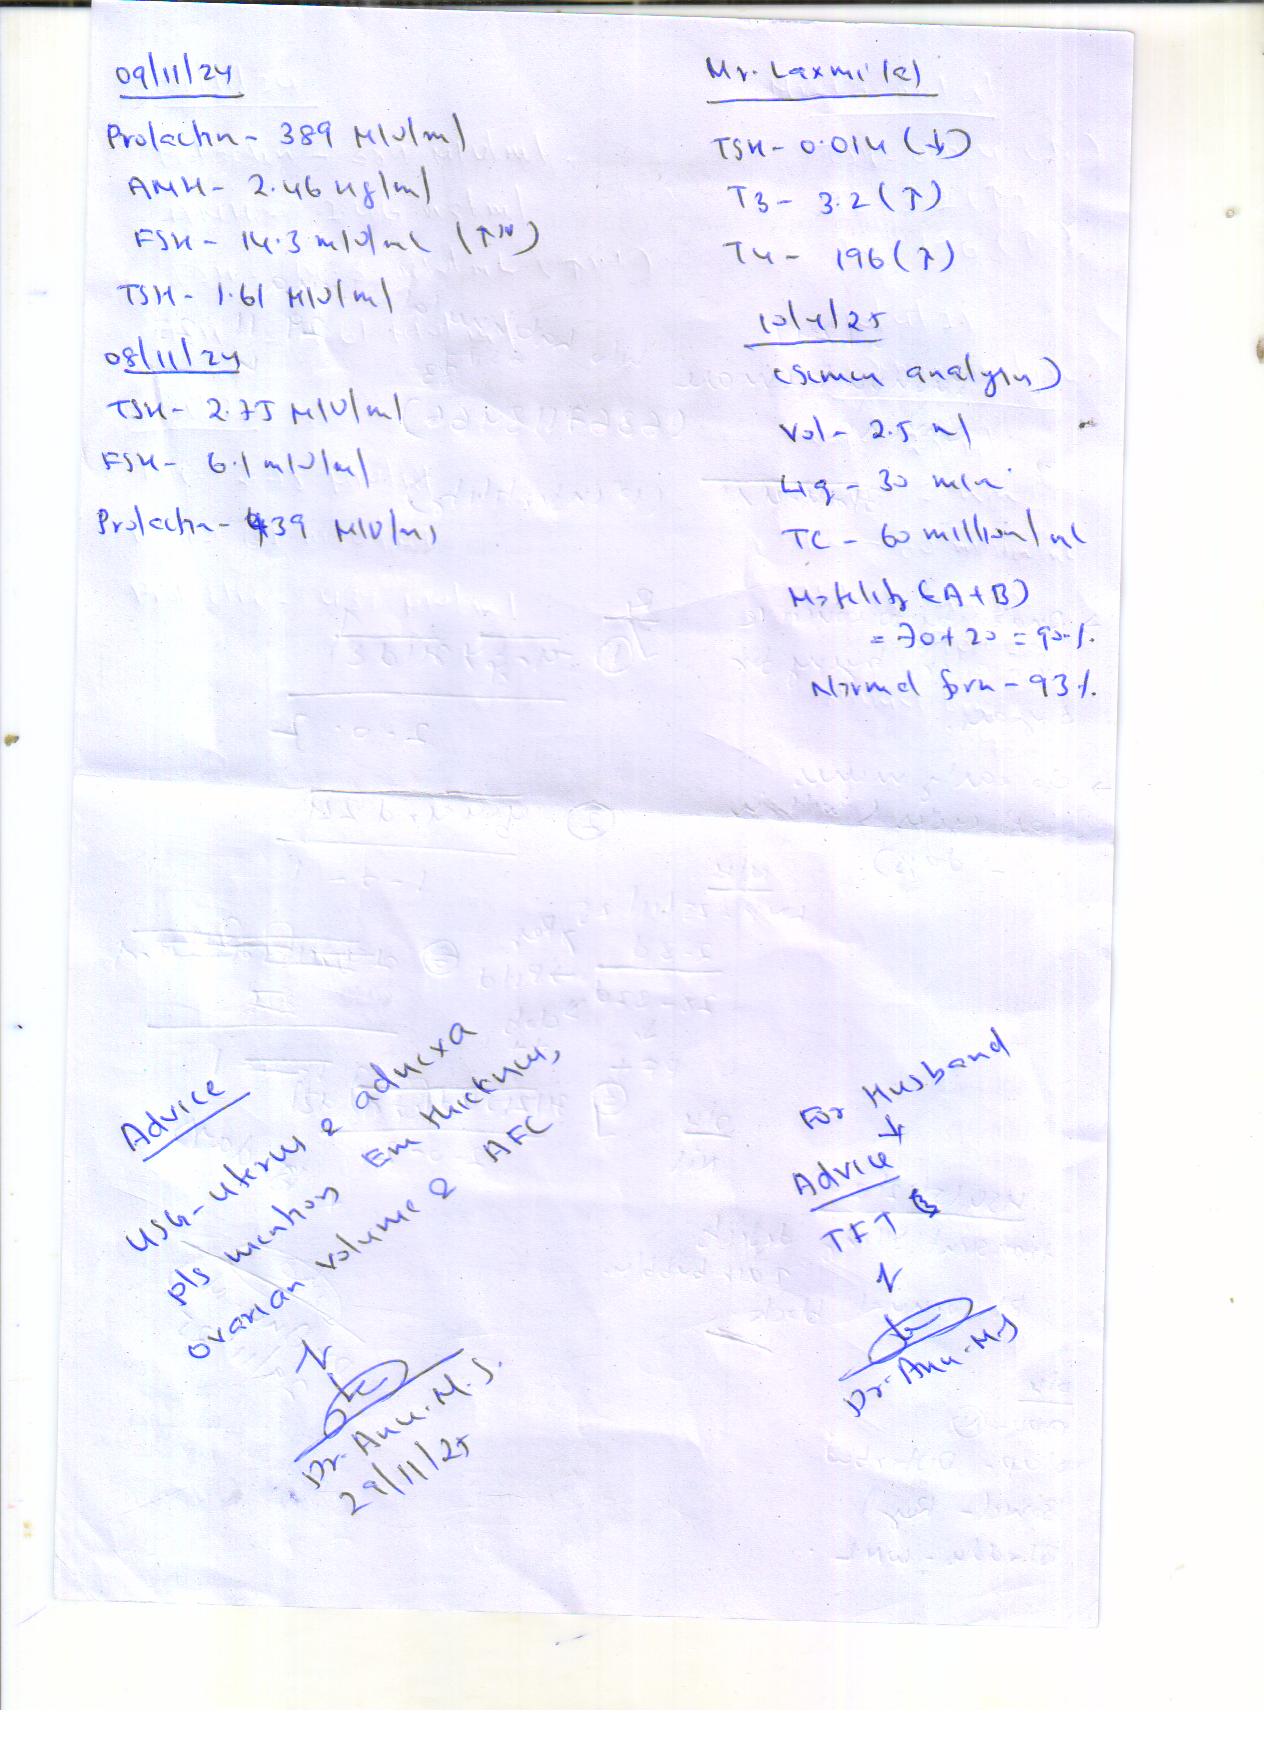 09/11/24
Prolactin - 389 MIU/ml
AMH - 2.46 ng/ml
FSH - 14.3 mIU/ml (↑)
TSH - 1.61 MIU/ml
08/11/24
TSH - 2.75 MIU/ml
FSH - 6.1 mIU/ml
Prolactin - 439 MIU/ml
Mr. Laxmi
TSH - 0.014 (↓)
T3 - 3.2 (↑)
T4 - 196 (↑)
10/4/25
(Semen analysis)
Vol - 2.5 ml
Liq - 30 min
TC - 60 million/ml
Motility (A+B)
= 70 + 20 = 90%
Normal form - 93%
Advice
USG - uterus & adnexa
pls mention Em thickness,
ovarian volume & AFC
Dr. Anu. M. S.
29/11/25
For Husband
↓
Advice
TFT
Dr. Anu. M. S